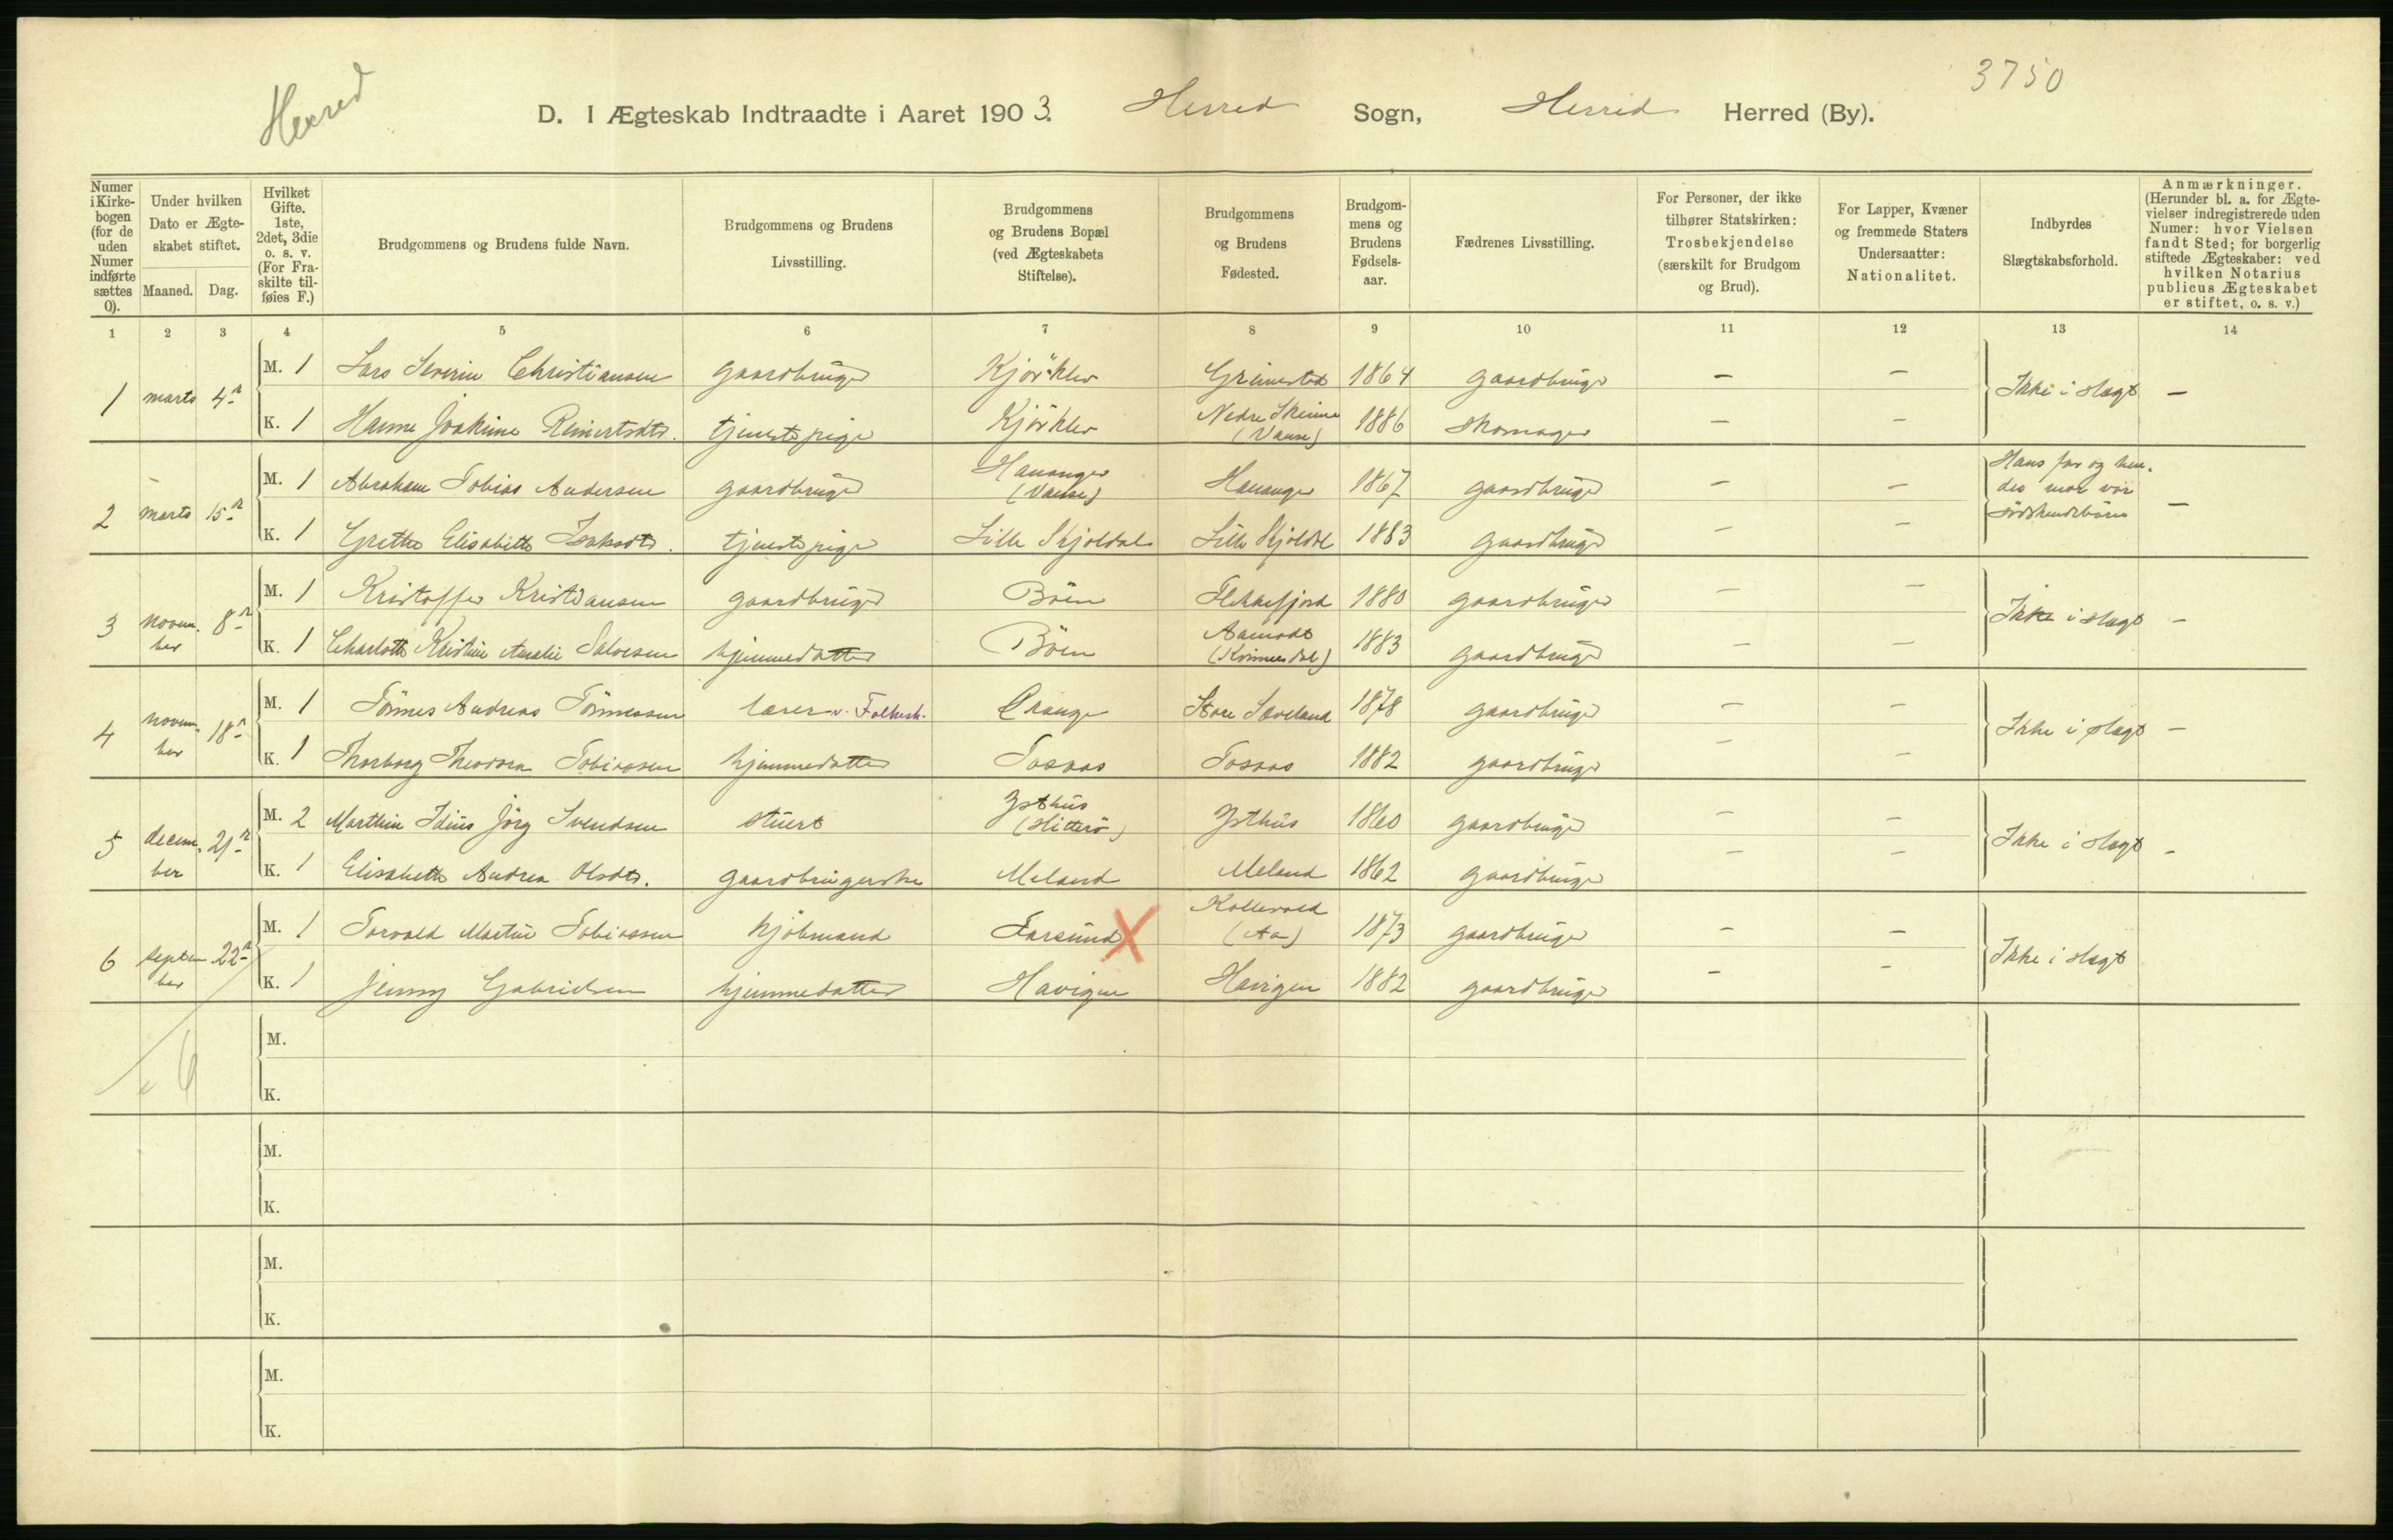 Herred
3750
D. I Ægteskab Indtraadte i Aaret 1903. Herred Sogn, Herred Herred (By).
Numer i Kirkebogen (for de uden Numer indførte sættes 0).
Under hvilken Dato er Ægteskabet stiftet.
Maaned. Dag.
Hvilket Gifte. 1ste, 2det, 3die o. s. v. (For Fraskilte tilføies F.)
Brudgommens og Brudens fulde Navn.
Brudgommens og Brudens Livsstilling.
Brudgommens og Brudens Bopæl (ved Ægteskabets Stiftelse).
Brudgommens og Brudens Fødested.
Brudgommens og Brudens Fødselsaar.
Fædrenes Livsstilling.
For Personer, der ikke tilhører Statskirken: Trosbekjendelse (særskilt for Brudgom og Brud).
For Lapper, Kvæner og fremmede Staters Undersaatter: Nationalitet.
Indbyrdes Slægtskabsforhold.
Anmærkninger. (Herunder bl. a. for Ægtevielser indregistrerede uden Numer: hvor Vielsen fandt Sted; for borgerlig stiftede Ægteskaber: ved hvilken Notarius publicus Ægteskabet er stiftet, o. s. v.)
1 2 3 4 5 6 7 8 9 10 11 12 13 14
1 marts 4 M. 1 Lars Severin Christiansen gaardbruger 1864 gaardbruger - - Ikke i slægt -
K. 1 Hanne Joakime Reinertsdtr. tjenestepige Nedre Skeime (Vanse) 1886 skomager - -
2 marts 15 M. 1 Abraham Tobias Andersen gaardbruger Hananger (Vanse) Hananger 1867 gaardbruger - - Hans far og hendes mor var södskendebörn -
K. 1 Grethe Elisabeth Isaksdtr. tjenestepige Lille Skjoldal Lille Skjoldal 1883 gaardbruger - -
3 november 8 M. 1 Kristoffer Kristiansen gaardbruger Böen Flekkefjord 1880 gaardbruger - - Ikke i slægt -
K. 1 Charlotte Kristine Amalie Salvesen hjemmedatter Böen Aamodt (Kvinesdal) 1883 gaardbruger - -
4 november 18 M. 1 Tönnes Andreas Tönnessen lærer v. Folkesk. Prange Store Sæveland 1878 gaardbruger - - Ikke i slægt -
K. 1 Thorborg Theodora Tobiassen hjemmedatter Tosaas Tosaas 1882 gaardbruger - -
5 december 21 M. 2 Marthin Idius Jörg Svendsen stuert Ysthus (Hitterö) Ysthus 1860 gaardbruger - - Ikke i slægt -
K. 1 Elisabeth Andrea Olsdtr. gaardbrugerske Meland Meland 1862 gaardbruger - -
6 september 22 M. 1 Torvald Martin Tobiassen kjöbmand Farsund X Kollevold (Aa) 1873 gaardbruger - - Ikke i slægt
K. 1 Jenny Gabrielsen hjemmedatter Havigen Havigen 1882 gaardbruger - -
6
M.
K.
M.
K.
M.
K.
M.
K.